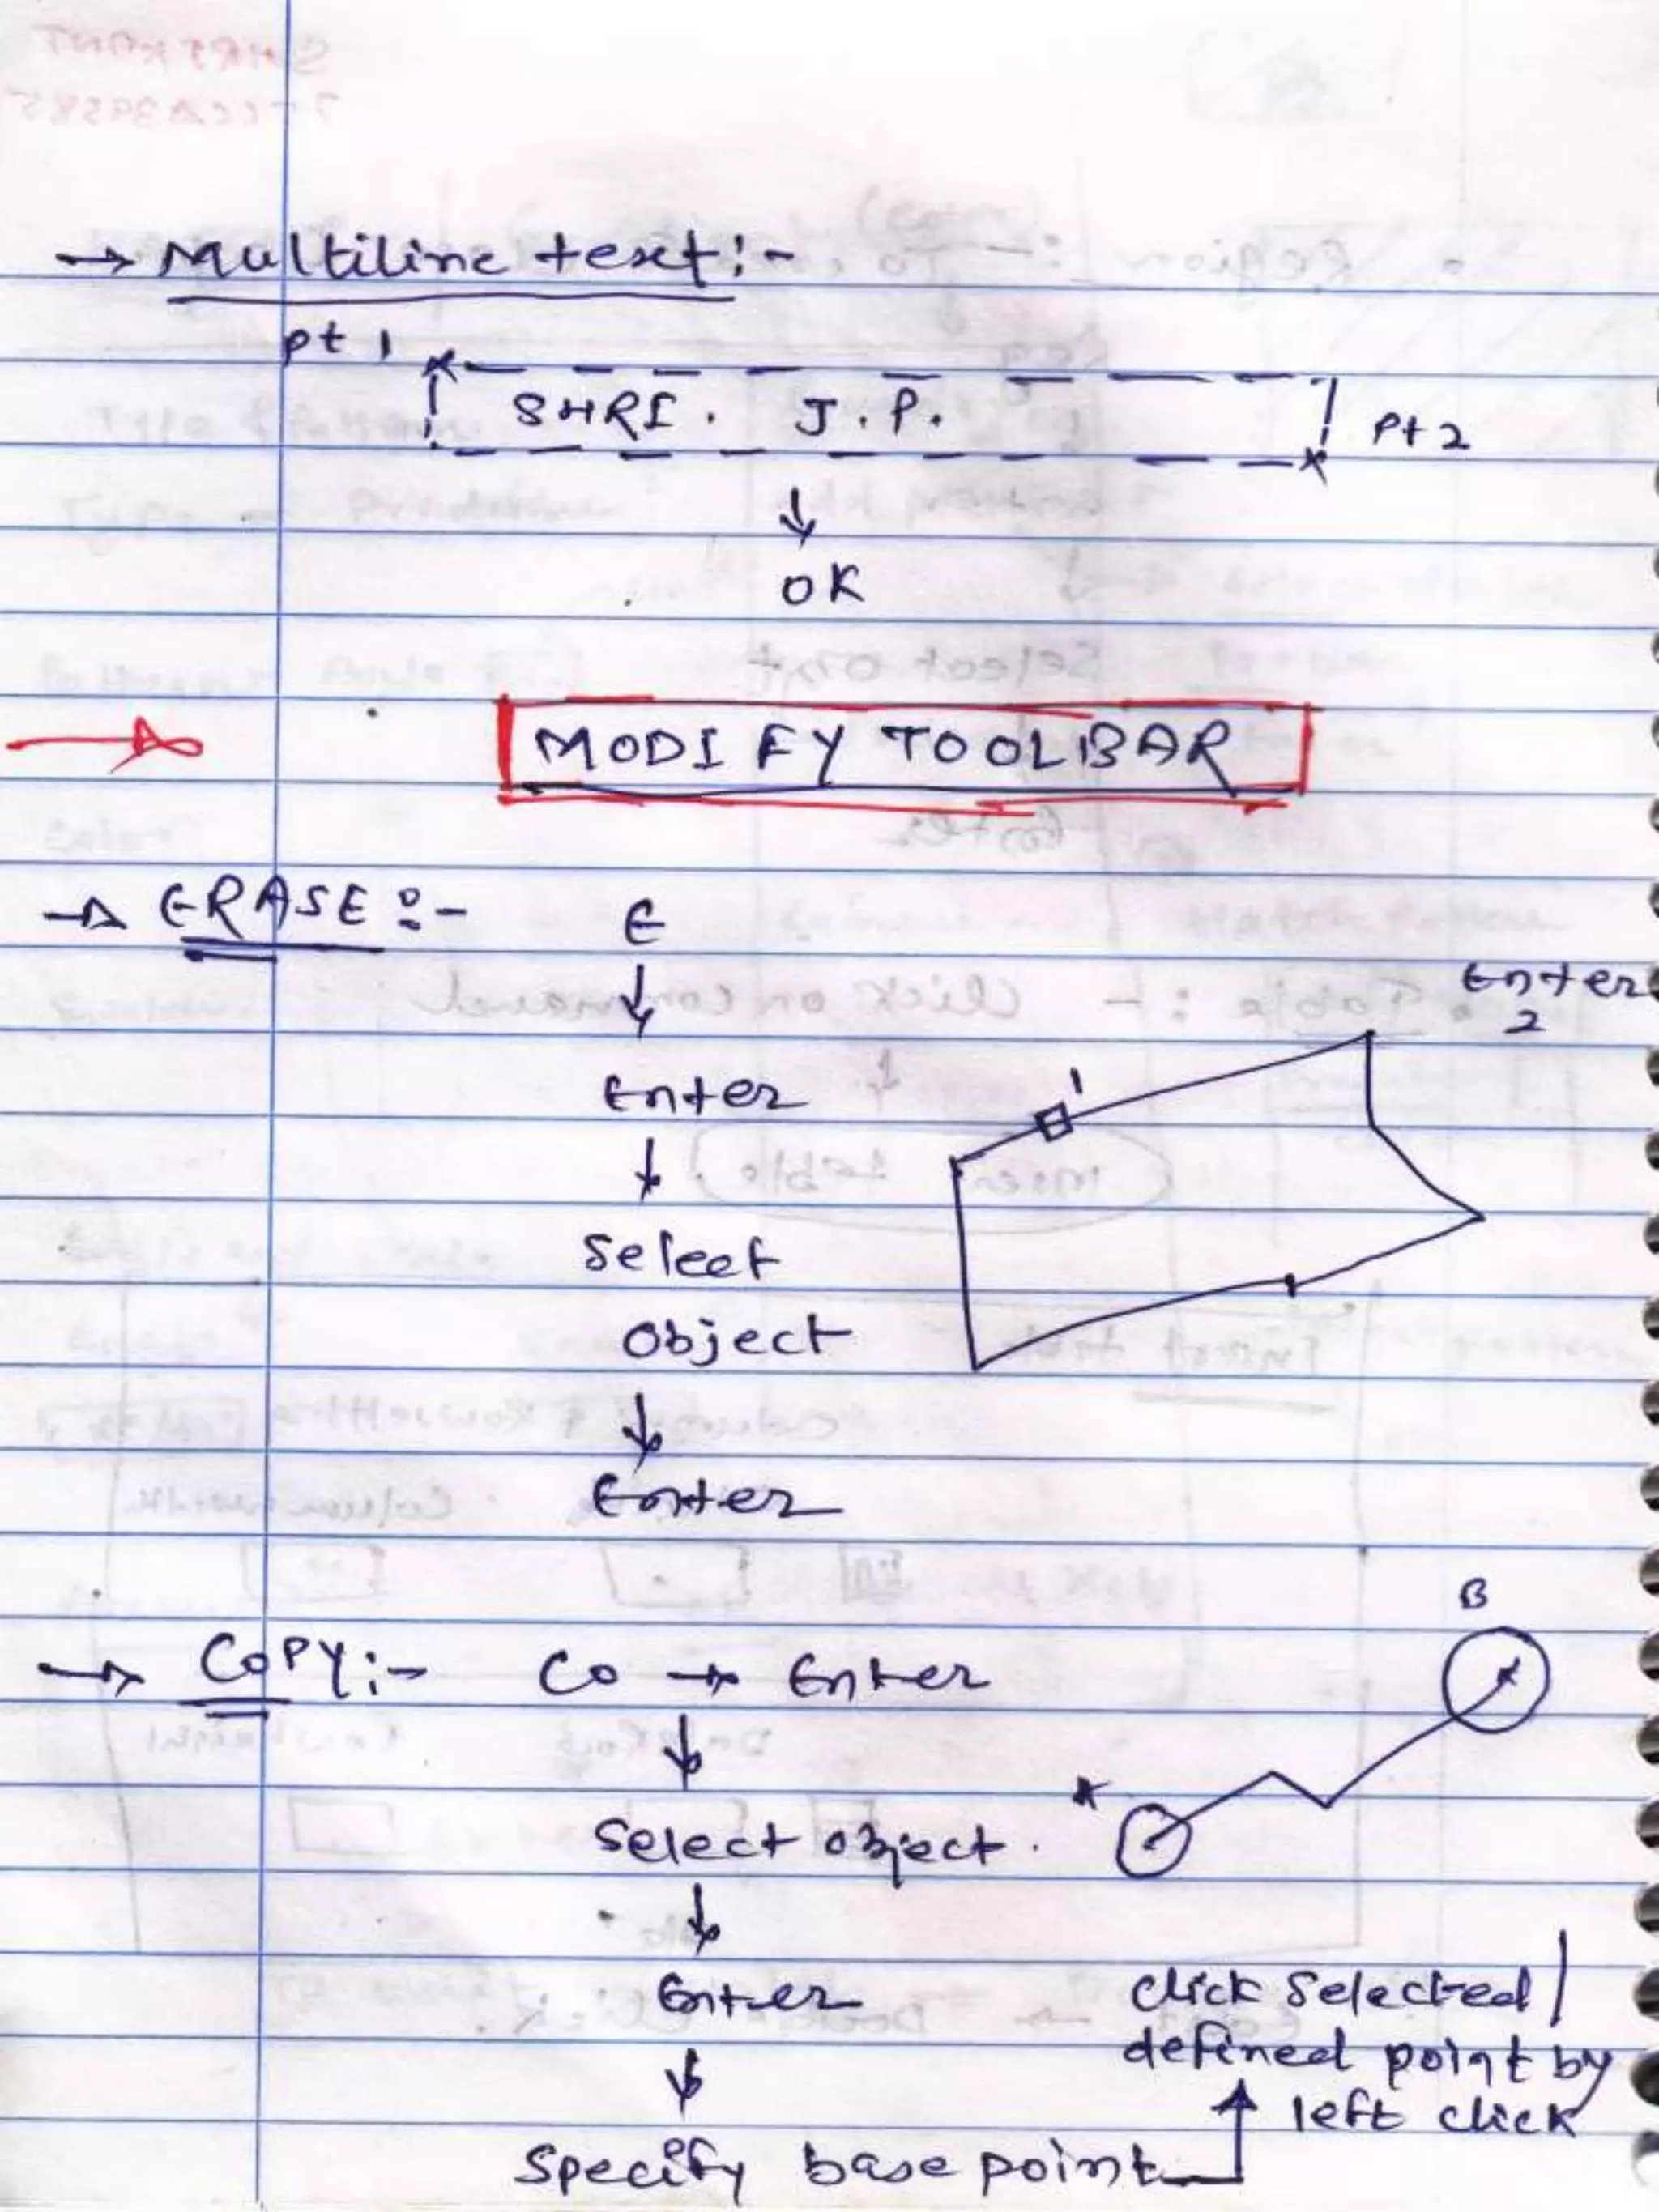 → Multiline text:-
pt 1
SHRI. J.P.
Pt 2
↓
OK
MODIFY TOOLBAR
→ ERASE:- E
↓
Enter
↓
Select
Object
↓
Enter
Enter
2
1
→ COPY:- CO → Enter
↓
Select object.
↓
Enter
↓
Specify base point
B
click selected /
defined point by
left click